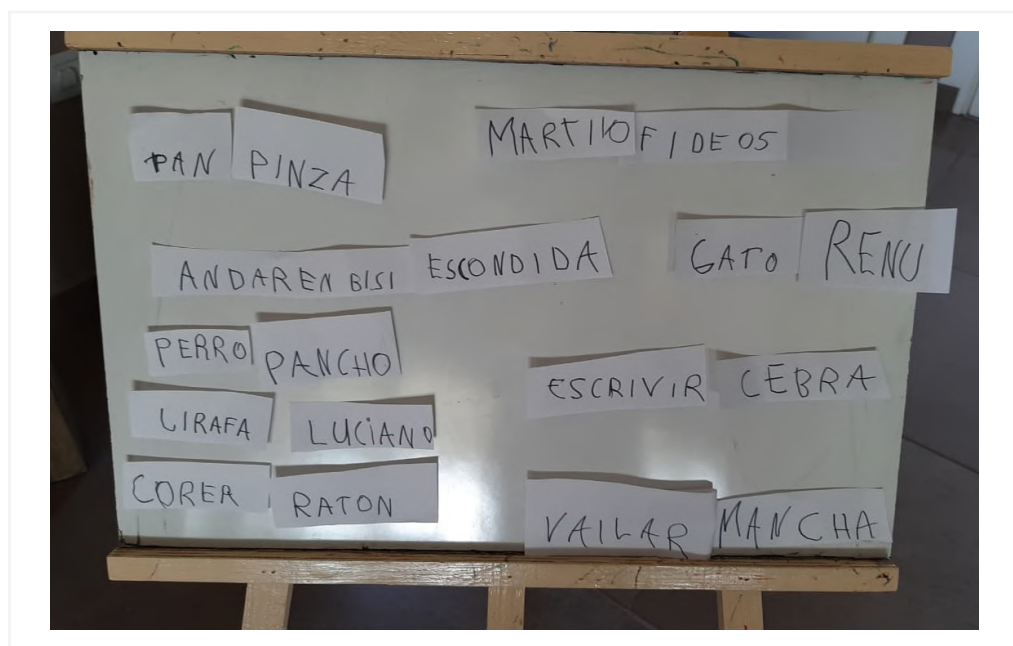 PAN PINZA
MARTIVO FIDEOS
ANDAR EN BISI ESCONDIDA
GATO RENU
PERRO PANCHO
ESCRIVIR CEBRA
GIRAFA LUCIANO
CORER RATON
VAILAR MANCHA